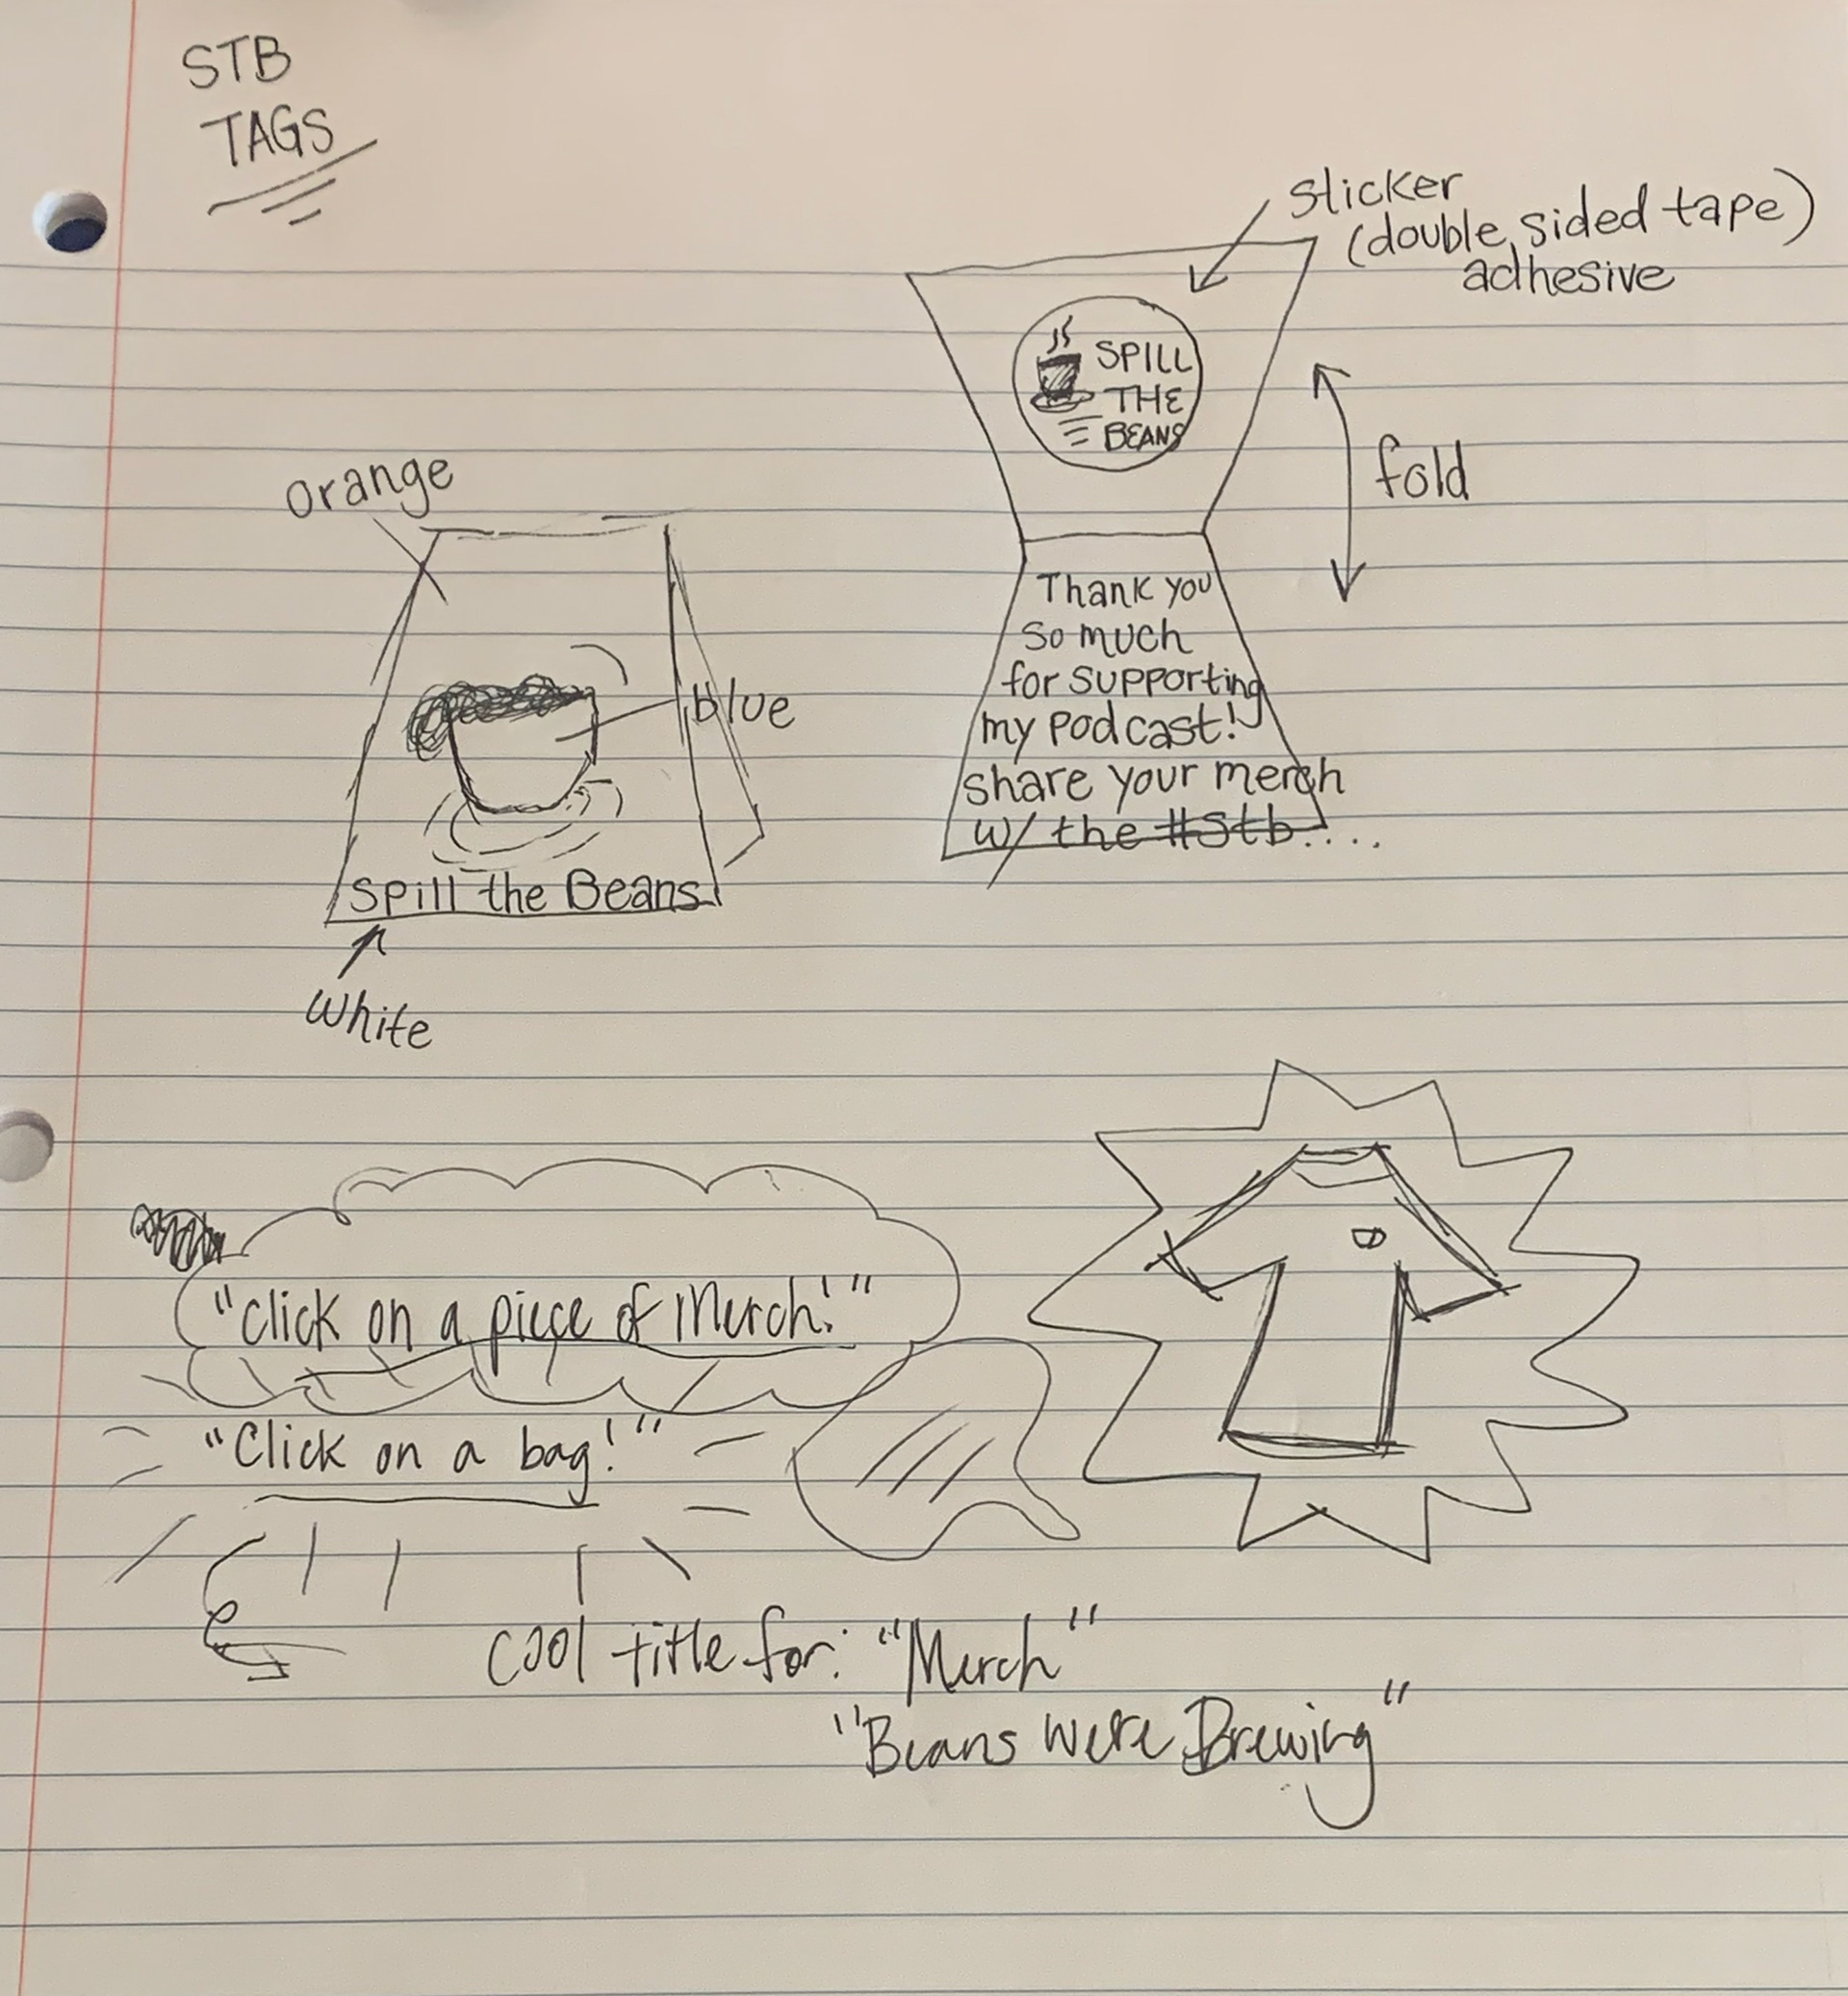 STB
TAGS
sticker
(double sided tape)
adhesive
SPILL
THE
BEANS
fold
Thank you
so much
for supporting
my podcast!
share your merch
w/ the #Stb....
orange
blue
Spill the Beans
white
"Click on a piece of Merch!"
"Click on a bag!"
cool title for: "Merch"
"Beans were Brewing"